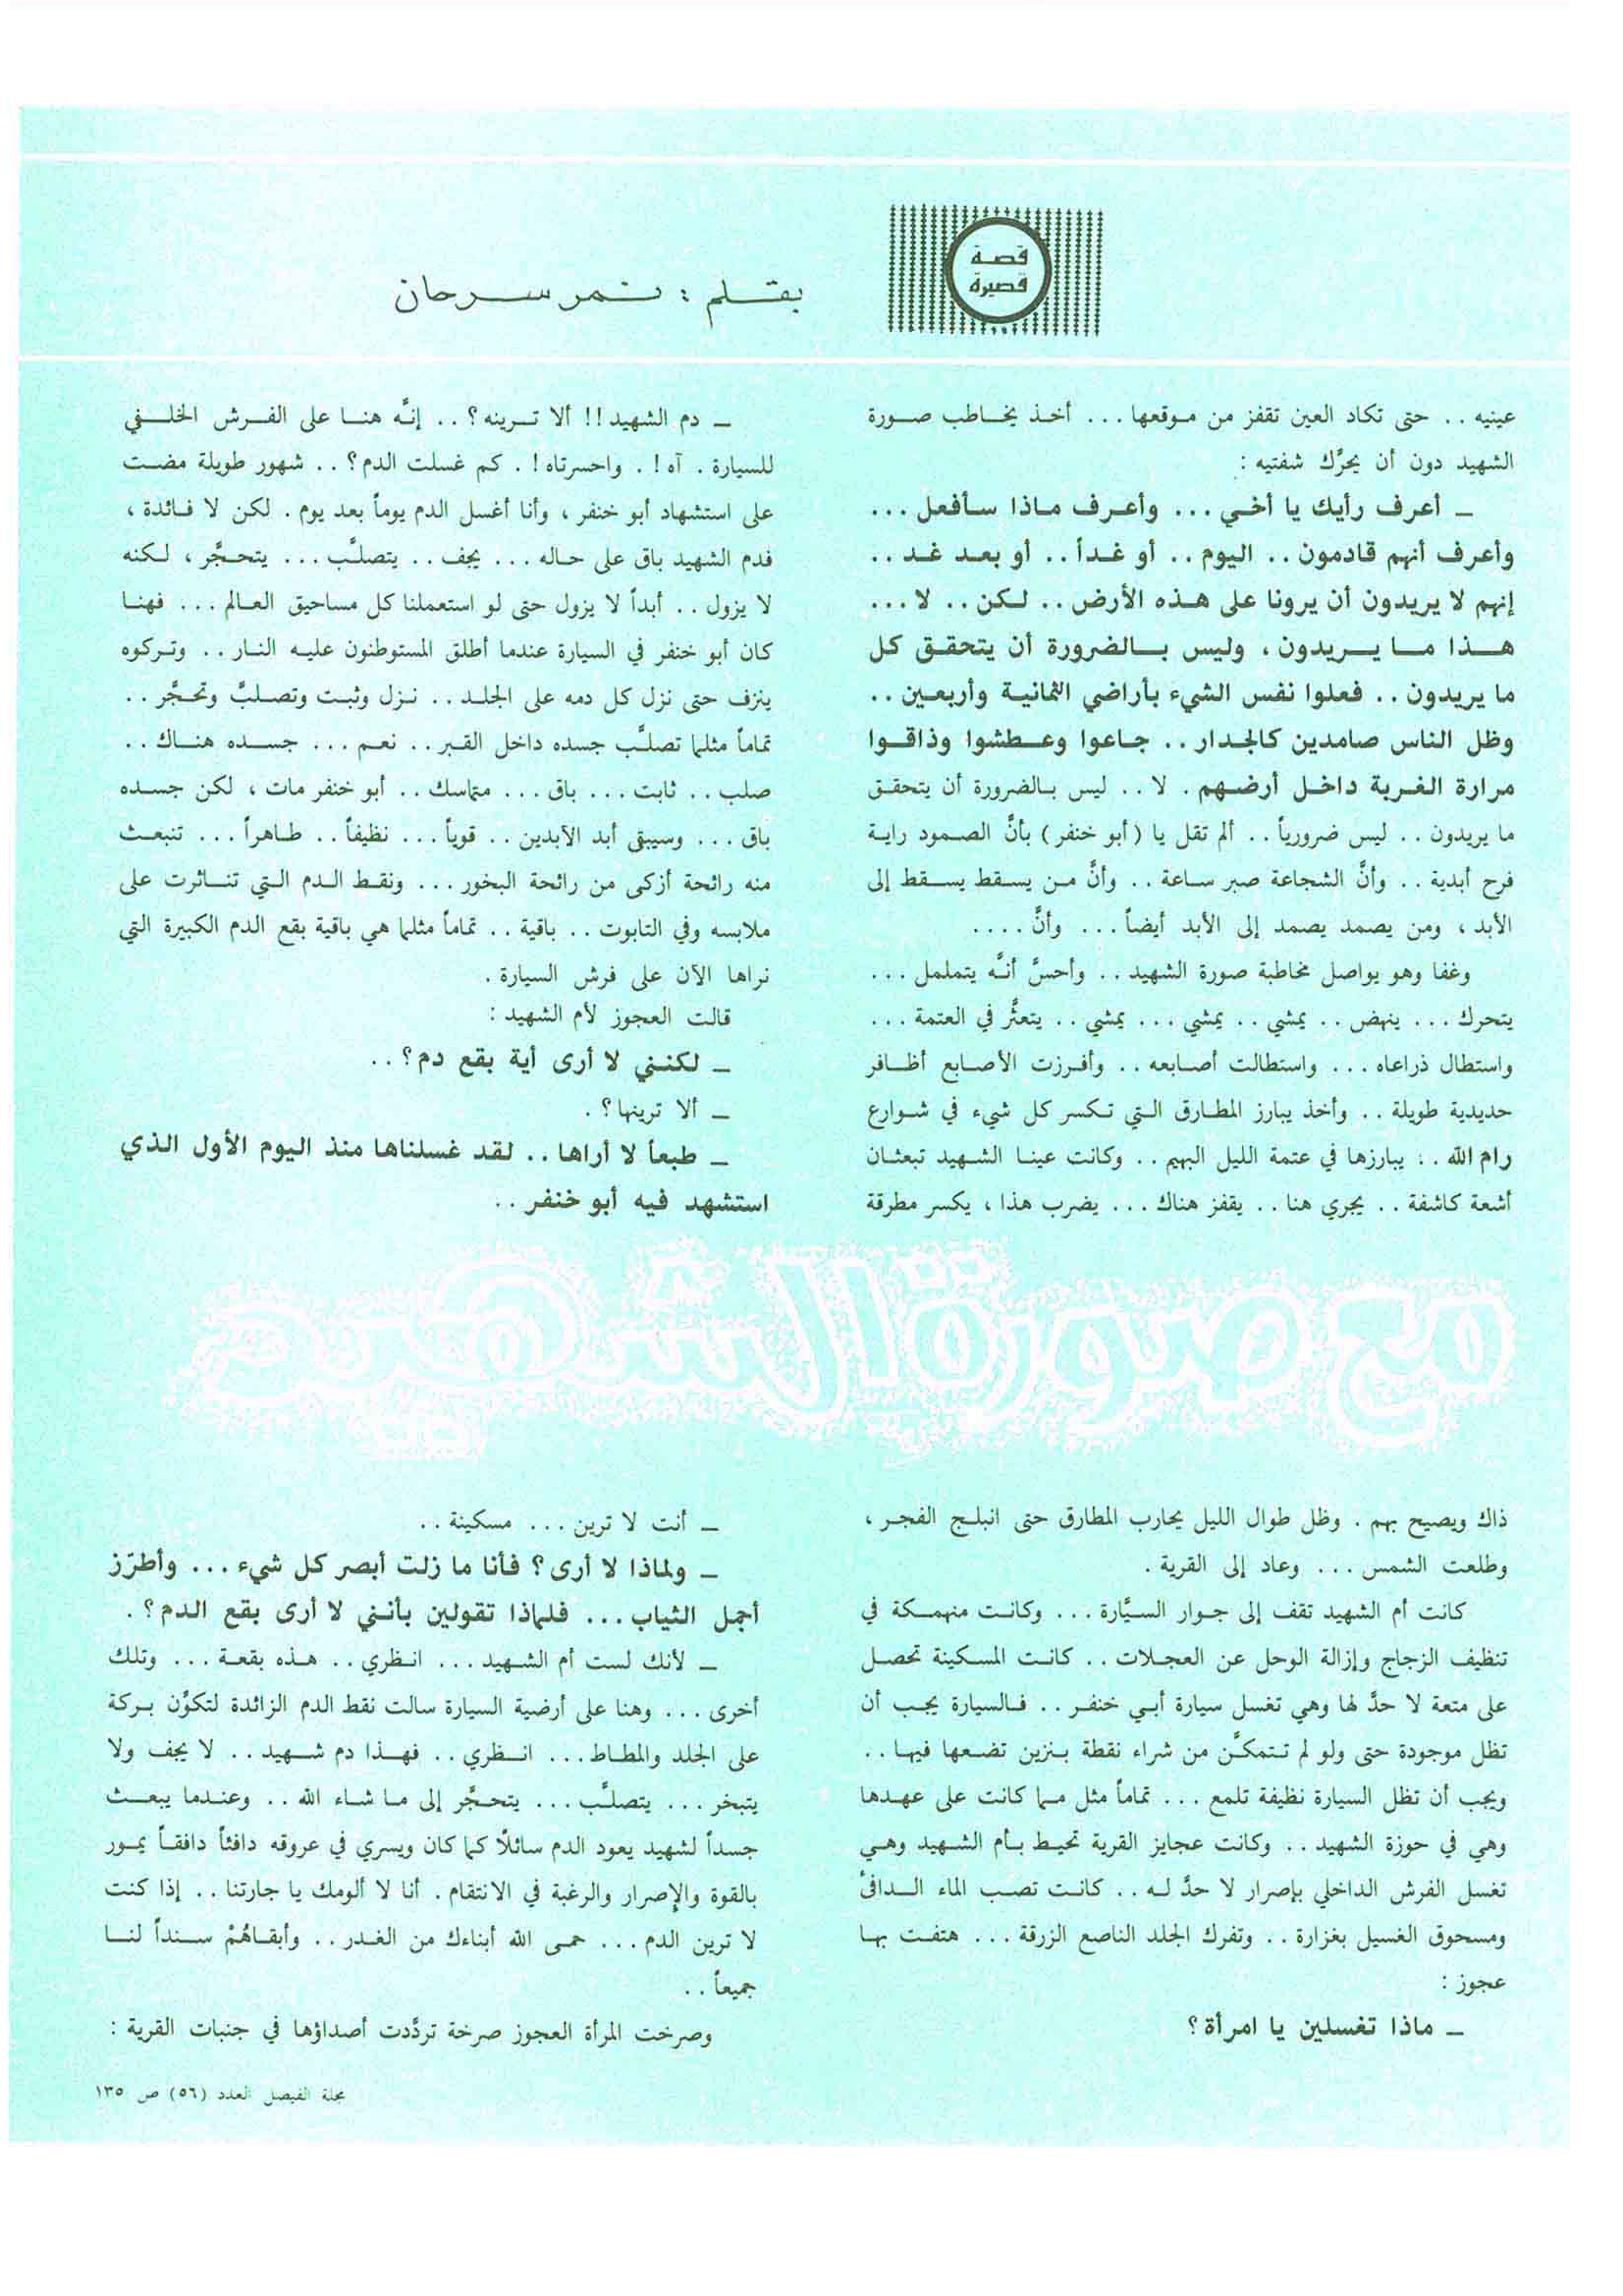 قصة
قصيرة
بقـلم : نـمر سـرحان
عينيه .. حتى تكاد العين تقفز من موقعها ... أخذ يخاطب صورة
الشهيد دون أن يحرَّك شفتيه :
ـ أعرف رأيك يا أخي ... وأعرف ماذا سأفعل ...
وأعرف أنهم قادمون .. اليوم .. أو غداً .. أو بعد غد ..
إنهم لا يريدون أن يرونا على هذه الأرض .. لكن .. لا ...
هذا ما يريدون ، وليس بالضرورة أن يتحقق كل
ما يريدون .. فعلوا نفس الشيء بأراضي الثمانية وأربعين ..
وظل الناس صامدين كالجدار .. جاعوا وعطشوا وذاقوا
مرارة الغربة داخل أرضهم . لا .. ليس بالضرورة أن يتحقق
ما يريدون .. ليس ضرورياً .. ألم تقل يا (أبو خنفر) بأنَّ الصمود راية
فرح أبدية .. وأنَّ الشجاعة صبر ساعة .. وأنَّ من يسقط يسقط إلى
الأبد ، ومن يصمد يصمد إلى الأبد أيضاً ... وأنَّ ....
وغفا وهو يواصل مخاطبة صورة الشهيد .. وأحسَّ أنَّه يتململ ...
يتحرك ... ينهض .. يمشي .. يمشي ... يمشي .. يتعثَّر في العتمة ...
واستطال ذراعاه ... واستطالت أصابعه .. وأفرزت الأصابع أظافر
حديدية طويلة .. وأخذ يبارز المطارق التي تكسر كل شيء في شوارع
رام الله .. يبارزها في عتمة الليل البهيم .. وكانت عينا الشهيد تبعثان
أشعة كاشفة .. يجري هنا .. يقفز هناك ... يضرب هذا ، يكسر مطرقة
ـ دم الشهيد !! ألا ترينه ؟ .. إنَّه هنا على الفرش الخلفي
للسيارة . آه ! . واحسرتاه ! . كم غسلت الدم ؟ .. شهور طويلة مضت
على استشهاد أبو خنفر ، وأنا أغسل الدم يوماً بعد يوم . لكن لا فائدة ،
فدم الشهيد باق على حاله ... يجف .. يتصلَّب ... يتحجَّر ، لكنه
لا يزول .. أبداً لا يزول حتى لو استعملنا كل مساحيق العالم ... فهنا
كان أبو خنفر في السيارة عندما أطلق المستوطنون عليه النار .. وتركوه
ينزف حتى نزل كل دمه على الجلد .. نزل وثبت وتصلبَّ وتحجَّر ..
تماماً مثلما تصلَّب جسده داخل القبر .. نعم ... جسده هناك ..
صلب .. ثابت ... باق ... متماسك .. أبو خنفر مات ، لكن جسده
باق ... وسيبقى أبد الآبدين .. قوياً ... نظيفاً .. طاهراً ... تنبعث
منه رائحة أزكى من رائحة البخور ... ونقط الدم التي تناثرت على
ملابسه وفي التابوت .. باقية .. تماماً مثلما هي باقية بقع الدم الكبيرة التي
نراها الآن على فرش السيارة .
قالت العجوز لأم الشهيد :
ـ لكنني لا أرى أية بقع دم ؟ ..
ـ ألا ترينها ؟ .
ـ طبعاً لا أراها .. لقد غسلناها منذ اليوم الأول الذي
استشهد فيه أبو خنفر ..
مع صورة الشهيد
ذاك ويصيح بهم . وظل طوال الليل يحارب المطارق حتى انبلج الفجر ،
وطلعت الشمس ... وعاد إلى القرية .
كانت أم الشهيد تقف إلى جوار السيَّارة ... وكانت منهمكة في
تنظيف الزجاج وإزالة الوحل عن العجلات .. كانت المسكينة تحصل
على متعة لا حدَّ لها وهي تغسل سيارة أبي خنفر .. فالسيارة يجب أن
تظل موجودة حتى ولو لم تتمكَّن من شراء نقطة بنزين تضعها فيها ..
ويجب أن تظل السيارة نظيفة تلمع ... تماماً مثل مما كانت على عهدها
وهي في حوزة الشهيد .. وكانت عجايز القرية تحيط بأم الشهيد وهي
تغسل الفرش الداخلي بإصرار لا حدَّ له .. كانت تصب الماء الدافئ
ومسحوق الغسيل بغزارة .. وتفرك الجلد الناصع الزرقة ... هتفت بها
عجوز :
ـ ماذا تغسلين يا امرأة ؟
ـ أنت لا ترين ... مسكينة ..
ـ ولماذا لا أرى ؟ فأنا ما زلت أبصر كل شيء ... وأطرّز
أجمل الثياب ... فلماذا تقولين بأنني لا أرى بقع الدم ؟ .
ـ لأنك لست أم الشهيد ... انظري .. هذه بقعة ... وتلك
أخرى ... وهنا على أرضية السيارة سالت نقط الدم الزائدة لتكوِّن بركة
على الجلد والمطاط ... انظري .. فهذا دم شهيد .. لا يجف ولا
يتبخر ... يتصلَّب ... يتحجَّر إلى ما شاء الله .. وعندما يبعث
جسداً لشهيد يعود الدم سائلًا كما كان ويسري في عروقه دافئاً دافقاً يمور
بالقوة والإصرار والرغبة في الانتقام . أنا لا ألومك يا جارتنا .. إذا كنت
لا ترين الدم ... حمى الله أبناءك من الغدر .. وأبقاهُمْ سنداً لنا
جميعاً ..
وصرخت المرأة العجوز صرخة تردَّدت أصداؤها في جنبات القرية :
مجلة الفيصل العدد (٥٦) ص ١٣٥